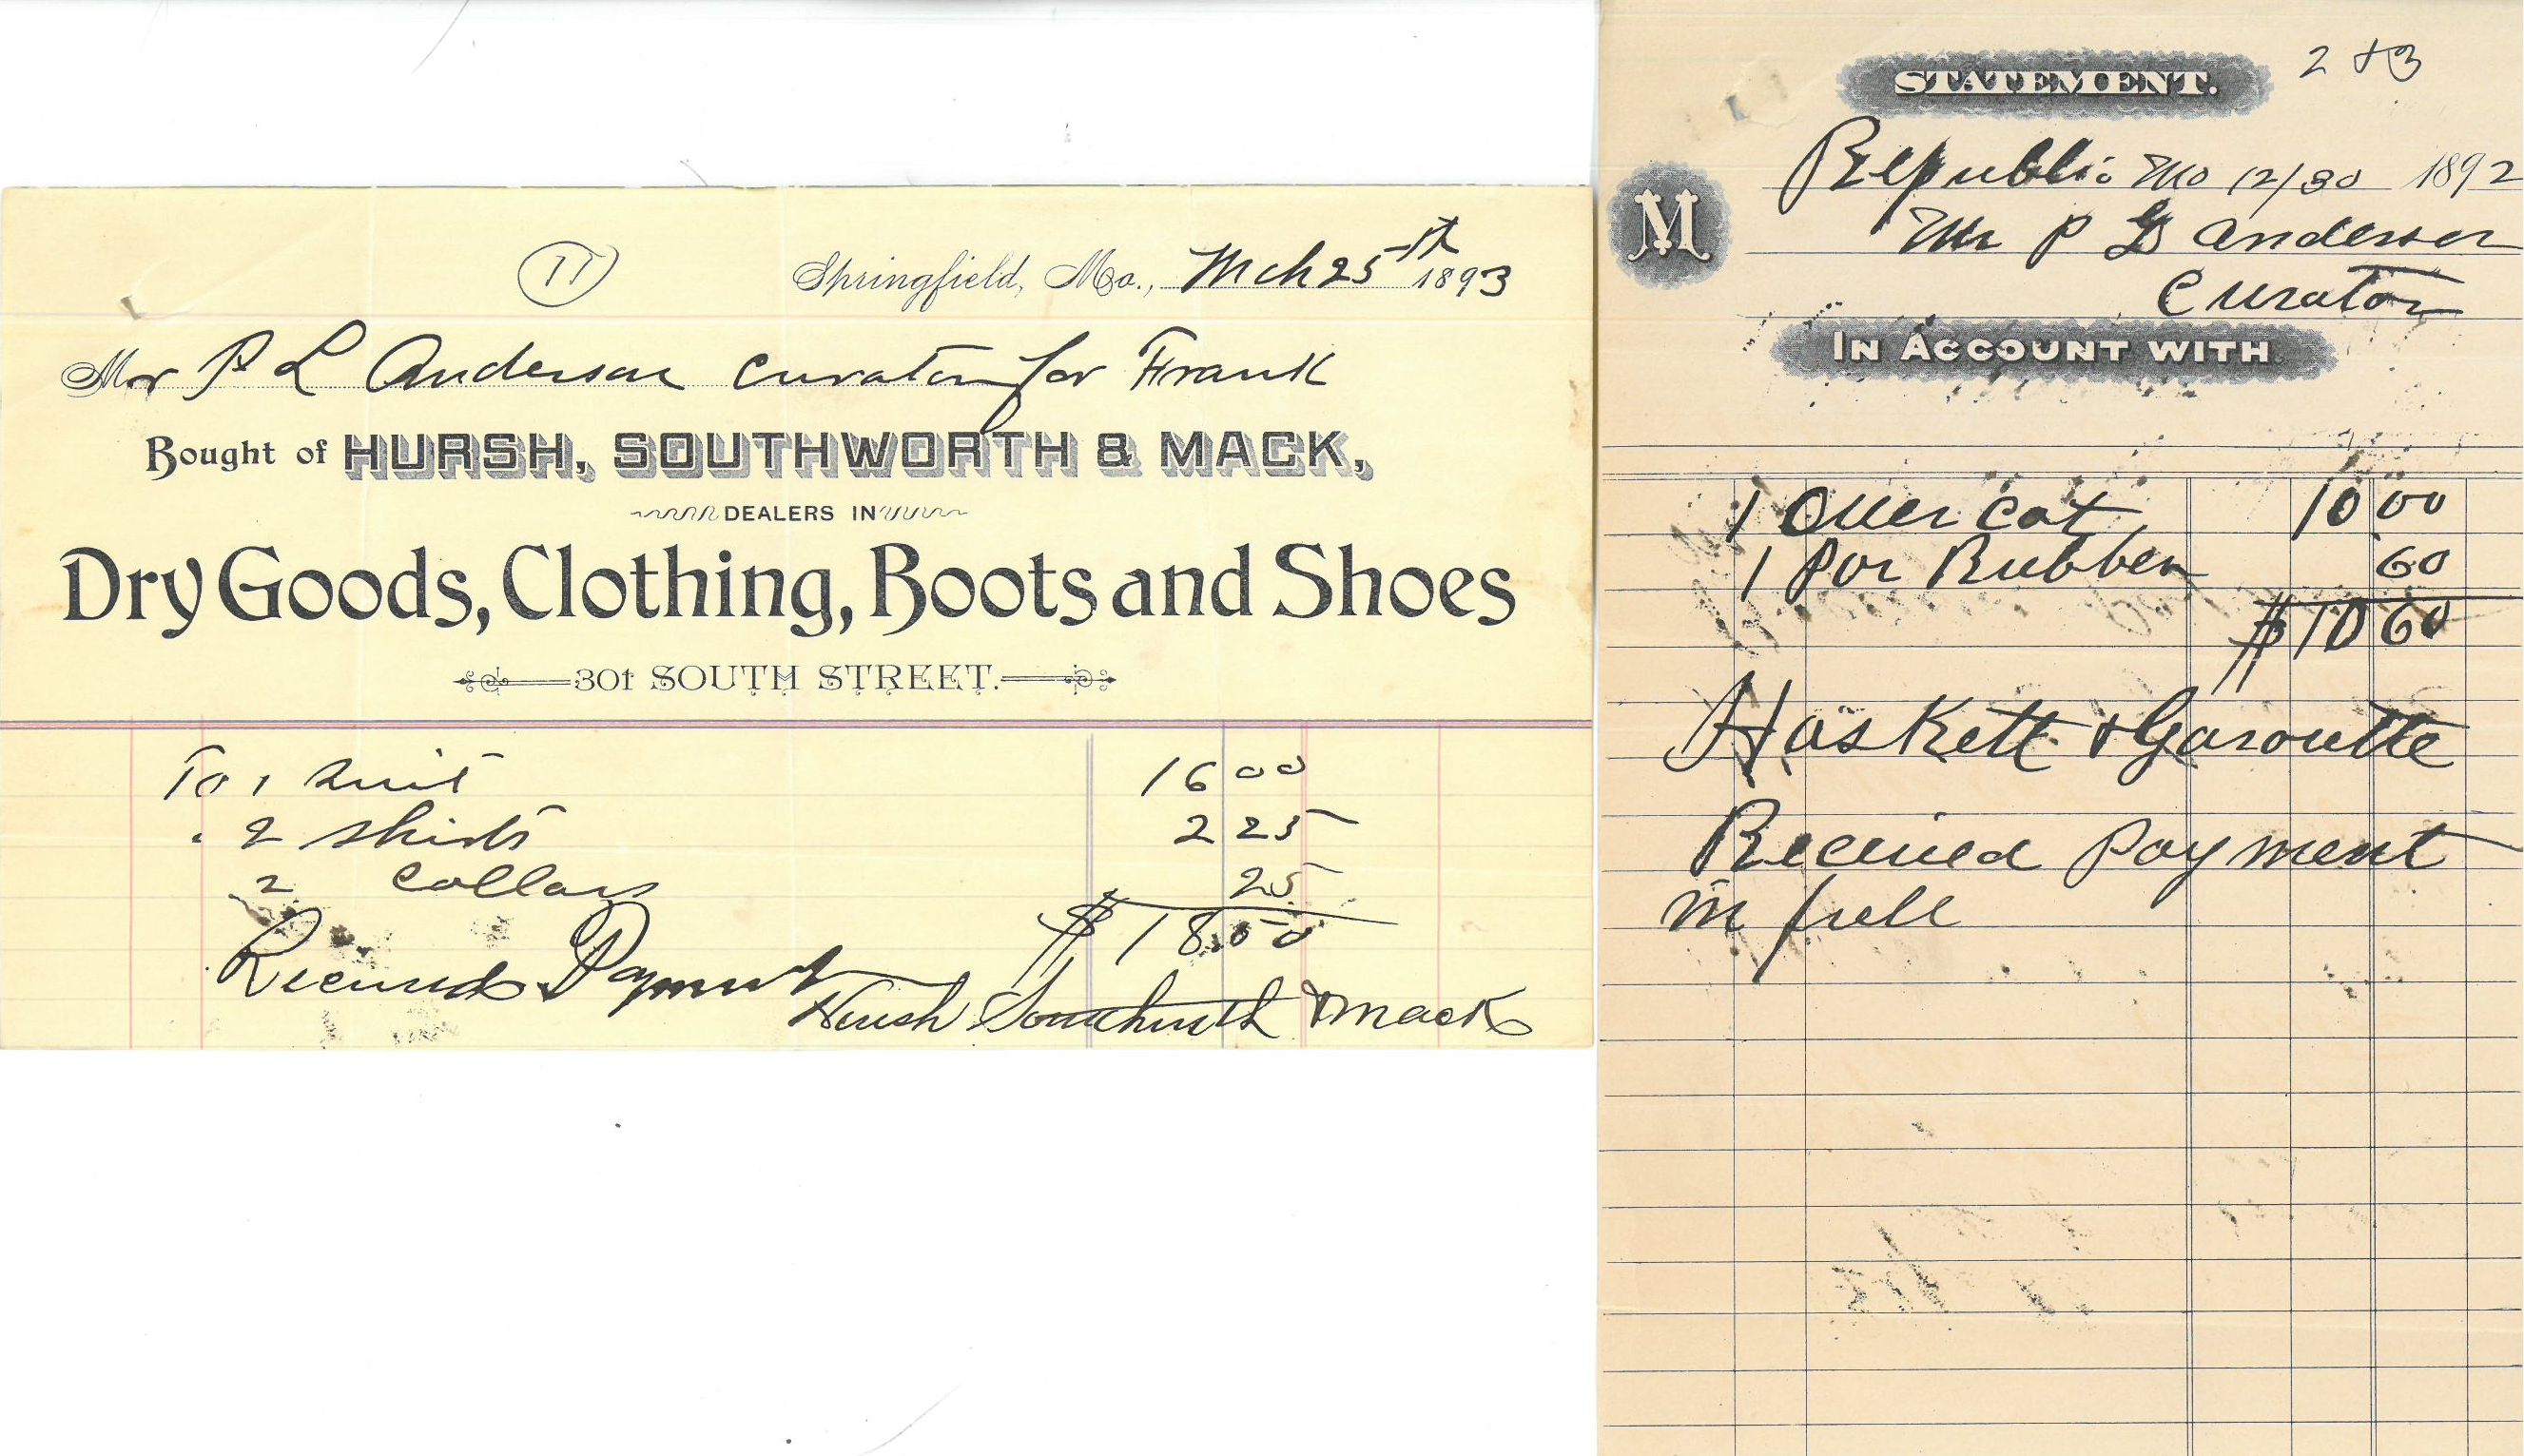 11
Springfield, Mo., Mch 25st 1893
Mr P L Anderson Curator for Frank
Bought of HURSH, SOUTHWORTH & MACK,
DEALERS IN
Dry Goods, Clothing, Boots and Shoes
301 SOUTH STREET.
To 1 Suit 16 00
" 2 Shirts 2 25
2 Collars 25
$18.50
Received Payment
Hursh Southworth & Mack
2 & 3
STATEMENT.
Republic Mo 12/30 1892
M
Mr P L Anderson
Curator
IN ACCOUNT WITH
1 Over Cot 10 00
1 Par Rubber 60
$10 60
Haskett & Garoutte
Received Payment
in full